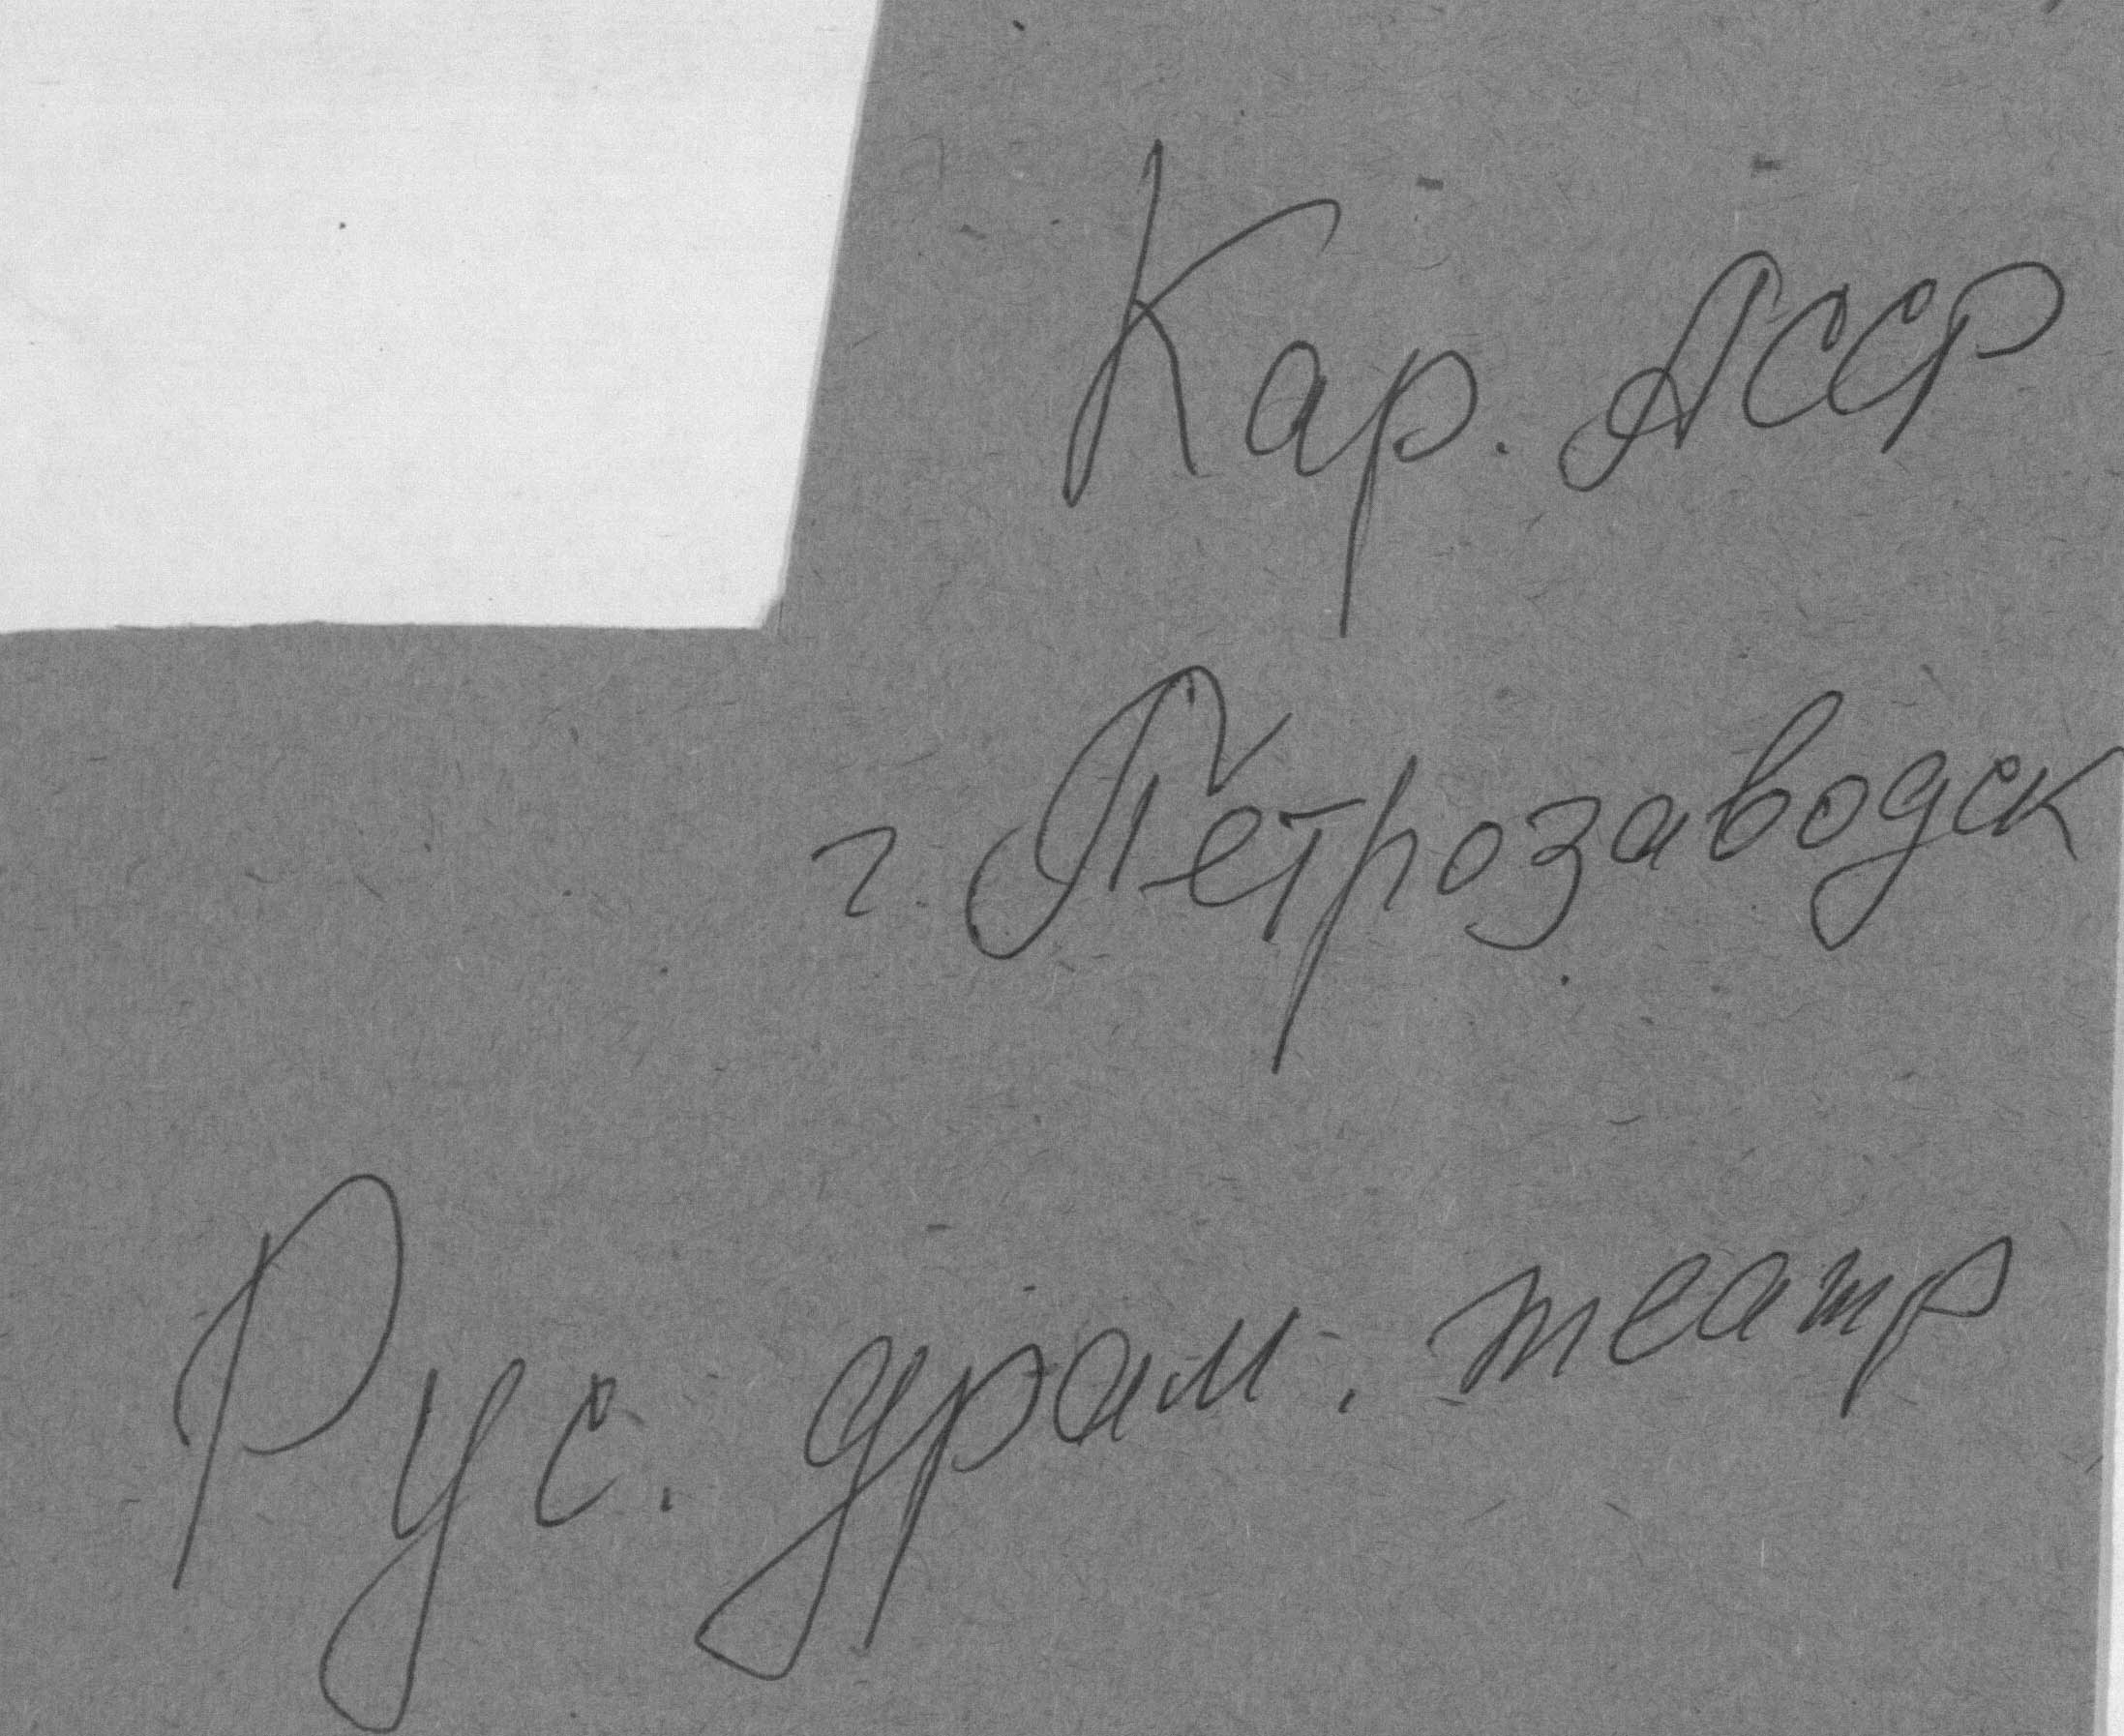 Кар. АССР
г. Петрозаводск
Рус. драм. театр